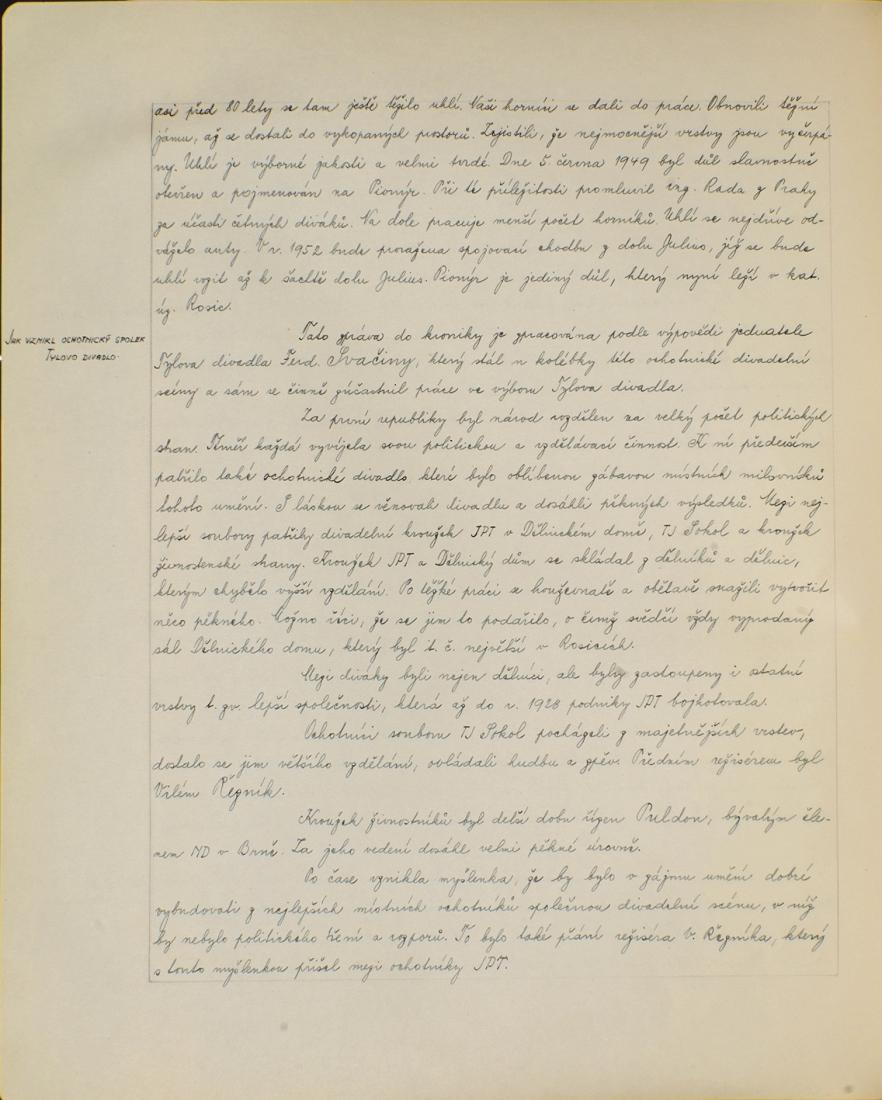 asi před 80 lety se tam ještě těžilo uhlí. Naši horníci se dali do práce. Obnovili těžní
jámu, až se dostali do vykopaných prostorů. Zajistili, že nejmocnější vrstvy jsou vyčerpá-
ny. Uhlí je výborné jakosti a velmi tvrdé. Dne 5. června 1949 byl důl slavnostně
otevřen a pojmenován na Pionýr. Při té příležitosti promluvil ing. Rada z Prahy
za účasti četných diváků. Na dole pracuje menší počet horníků. Uhlí se nejdříve od-
váželo auty. V r. 1952 bude proražena spojovací chodba z dolu Julius, jíž se bude
uhlí vozit až k šachtě dolu Julius. Pionýr je jediný důl, který nyní leží v kat.
úz. Rosic.
JAK VZNIKL OCHOTNICKÝ SPOLEK
TYLOVO DIVADLO.
Tato zpráva do kroniky je zpracována podle výpovědi jednatele
Tylova divadla Ferd. Svačiny, který stál u kolébky této ochotnické divadelní
scény a sám se činně zúčastnil práce ve výboru Tylova divadla.
Za první republiky byl národ rozdělen na velký počet politických
stran. Téměř každá vyvíjela svou politickou a vzdělávací činnost. K ní především
patřilo také ochotnické divadlo, které bylo oblíbenou zábavou místních milovníků
tohoto umění. S láskou se věnovali divadlu a dosáhli pěkných výsledků. Mezi nej-
lepší soubory patřily divadelní kroužek JPT v Dělnickém domě, TJ Sokol a kroužek
živnostenské strany. Kroužek JPT a Dělnický dům se skládal z dělníků a dělnic,
kterým chybělo vyšší vzdělání. Po těžké práci se houževnatě a obětavě snažili vytvořit
něco pěkného. Možno říci, že se jim to podařilo, o čemž svědčí vždy vyprodaný
sál Dělnického domu, který byl t. č. největší v Rosicích.
Mezi diváky byli nejen dělníci, ale byly zastoupeny i ostatní
vrstvy t. zv. lepší společnosti, která až do r. 1928 podniky JPT bojkotovala.
Ochotníci souboru TJ Sokol pocházeli z majetnějších vrstev,
dostalo se jim většího vzdělání, ovládali hudbu a zpěv. Předním režisérem byl
Vilém Řezník.
Kroužek živnostníků byl delší dobu řízen Puldou, bývalým čle-
nem ND v Brně. Za jeho vedení dosáhl velmi pěkné úrovně.
Po čase vznikla myšlenka, že by bylo v zájmu umění dobré
vybudovati z nejlepších místních ochotníků společnou divadelní scénu, v níž
by nebylo politického tření a rozporů. To bylo také přání režiséra V. Řezníka, který
s touto myšlenkou přišel mezi ochotníky JPT.